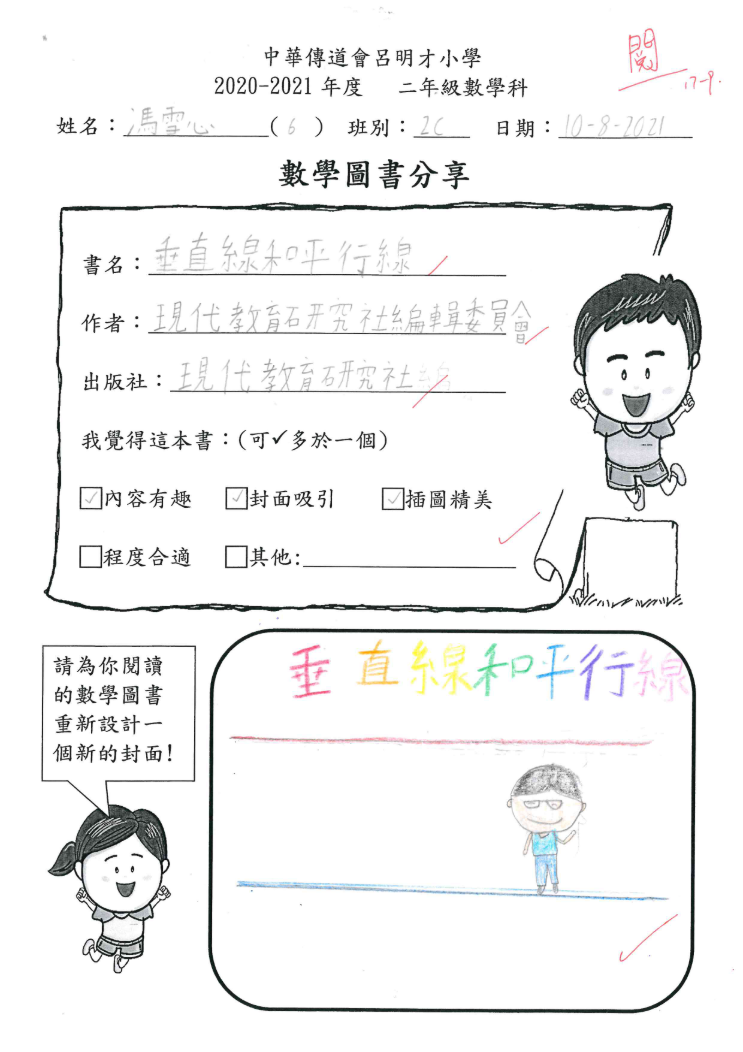 中華傳道會呂明才小學
2020-2021 年度 二年級數學科
閱
17-9.
姓名：馮雪心 (6) 班別：2C 日期：10-8-2021
數學圖書分享
書名：垂直線和平行線
作者：現代教育研究社編輯委員會
出版社：現代教育研究社
我覺得這本書：(可✓多於一個)
☑內容有趣 ☑封面吸引 ☑插圖精美
☐程度合適 ☐其他:
請為你閱讀
的數學圖書
重新設計一
個新的封面!
垂直線和平行線